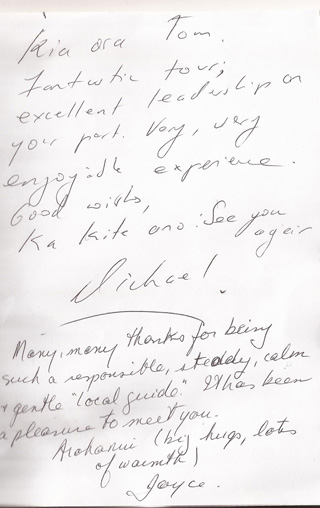 Kia ora Tom.
Fantastic tour;
excellent leadership on
your part. Very, very
enjoyable experience.
Good wishs,
Ka kite ano : See you
again
Michael!
Many, many thanks for being
such a responsible, steady, calm
+ gentle "local guide". It has been
a pleasure to meet you.
Arohanui (big hugs, lots
of warmth)
Joyce.